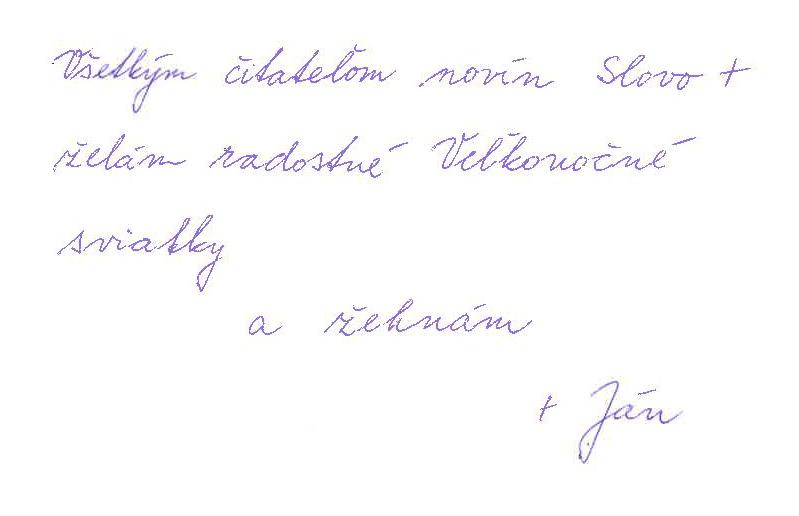 Všetkým čitateľom novín Slovo +
želám radostné Veľkonočné
sviatky
a žehnám
+ Ján